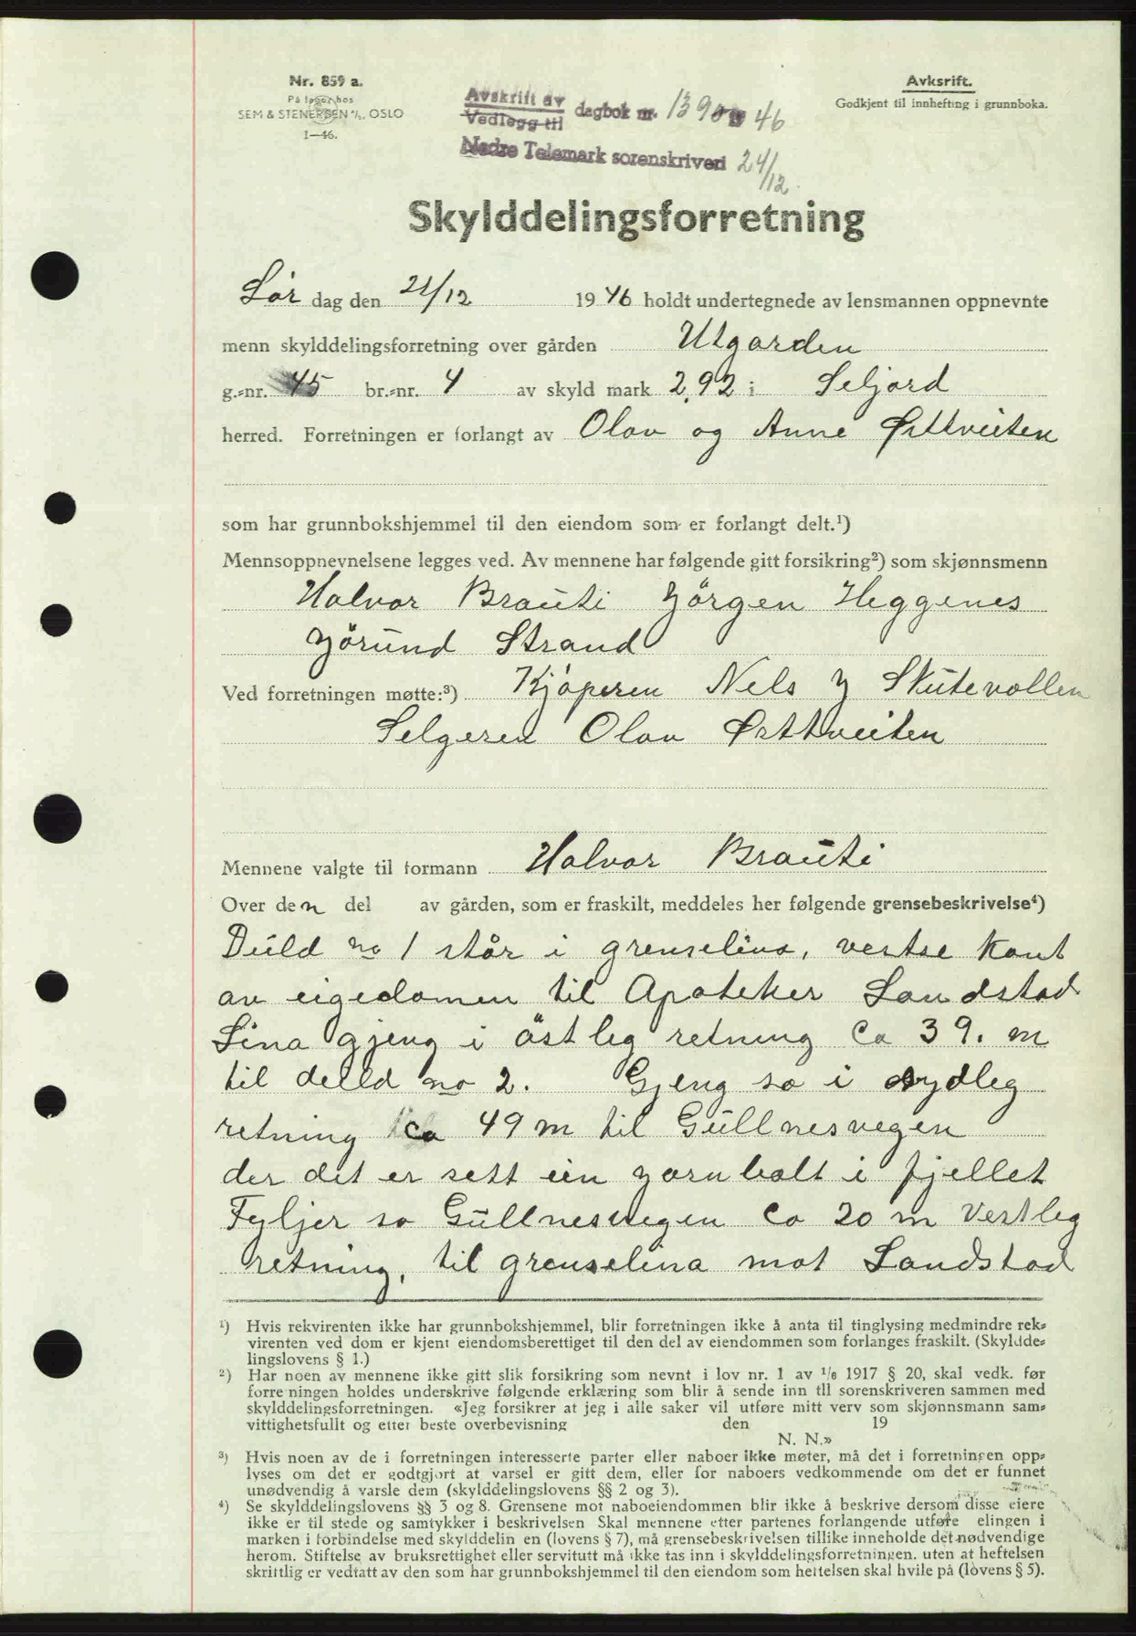 Nr. 859 a.
På lager hos
SEM & STENERSEN A/S, OSLO
1—46.
Avskrift av
Vedlegg til
dagbok nr. 1390 19 46
Nedre Telemark sorenskriveri 24/12
Avksrift.
Godkjent til innhefting i grunnboka.
Skylddelingsforretning
Lør dag den 21/12 1946 holdt undertegnede av lensmannen oppnevnte
menn skylddelingsforretning over gården Utgarden
g.-nr. 45 br.-nr. 4 av skyld mark 2,92 i Seljord
herred. Forretningen er forlangt av Olav og Anne Ørttveiten
som har grunnbokshjemmel til den eiendom som er forlangt delt.¹)
Mennsoppnevnelsene legges ved. Av mennene har følgende gitt forsikring²) som skjønnsmenn
Halvor Brauti Jörgen Heggenes
Jörund Strand
Ved forretningen møtte:³) Kjöperen Nels J Skutevollen
Selgeren Olav Ørttveiten
Mennene valgte til formann Halvor Brauti
Over den del av gården, som er fraskilt, meddeles her følgende grensebeskrivelse⁴)
Deild no 1 står i grenselina, vestre kant
av eigedomen til Apoteker Landstad
Lina gjeng i östleg retning Ca 39. m
til deild no 2. Gjeng so i sydleg
retning ca 49 m til Gullnesvegen
der det er sett ein jarnbolt i fjellet
Fyljer so Gullnesvegen Ca 20 m Vestleg
retning, til grenselina mot Landstad
¹) Hvis rekvirenten ikke har grunnbokshjemmel, blir forretningen ikke å anta til tinglysing medmindre rek-
virenten ved dom er kjent eiendomsberettiget til den del av eiendommen som forlanges fraskilt. (Skyldde-
lingslovens § 1.)
²) Har noen av mennene ikke gitt slik forsikring som nevnt i lov nr. 1 av 1/6 1917 § 20, skal vedk. før
forre ningen holdes underskrive følgende erklæring som blir å sende inn tll sorenskriveren sammen med
skylddelingsforretningen. «Jeg forsikrer at jeg i alle saker vil utføre mitt verv som skjønnsmann sam-
vittighetsfullt og etter beste overbevisning den 19
N. N.»
³) Hvis noen av de i forretningen interesserte parter eller naboer ikke møter, må det i forretningen opp-
lyses om det er godtgjort at varsel er gitt dem, eller for naboers vedkommende om det er funnet
unødvendig å varsle dem (skylddelingslovens §§ 2 og 3).
⁴) Se skylddelingslovens §§ 3 og 8. Grensene mot naboeiendommen blir ikke å beskrive dersom disse eiere
ikke er til stede og samtykker i beskrivelsen Skal mennene etter partenes forlangende utføre elingen i
marken i forbindelse med skylddelin en (lovens § 7), må grensebeskrivelsen tillike inneholde det nødvendige
herom. Stiftelse av bruksrettighet eller servitutt må ikke tas inn i skylddelingsforretningen. uten at heftelsen
skriftlig er vedtatt av den som har grunnbokshjemmel til den eiendom som heftelsen skal hvile på (lovens § 5).